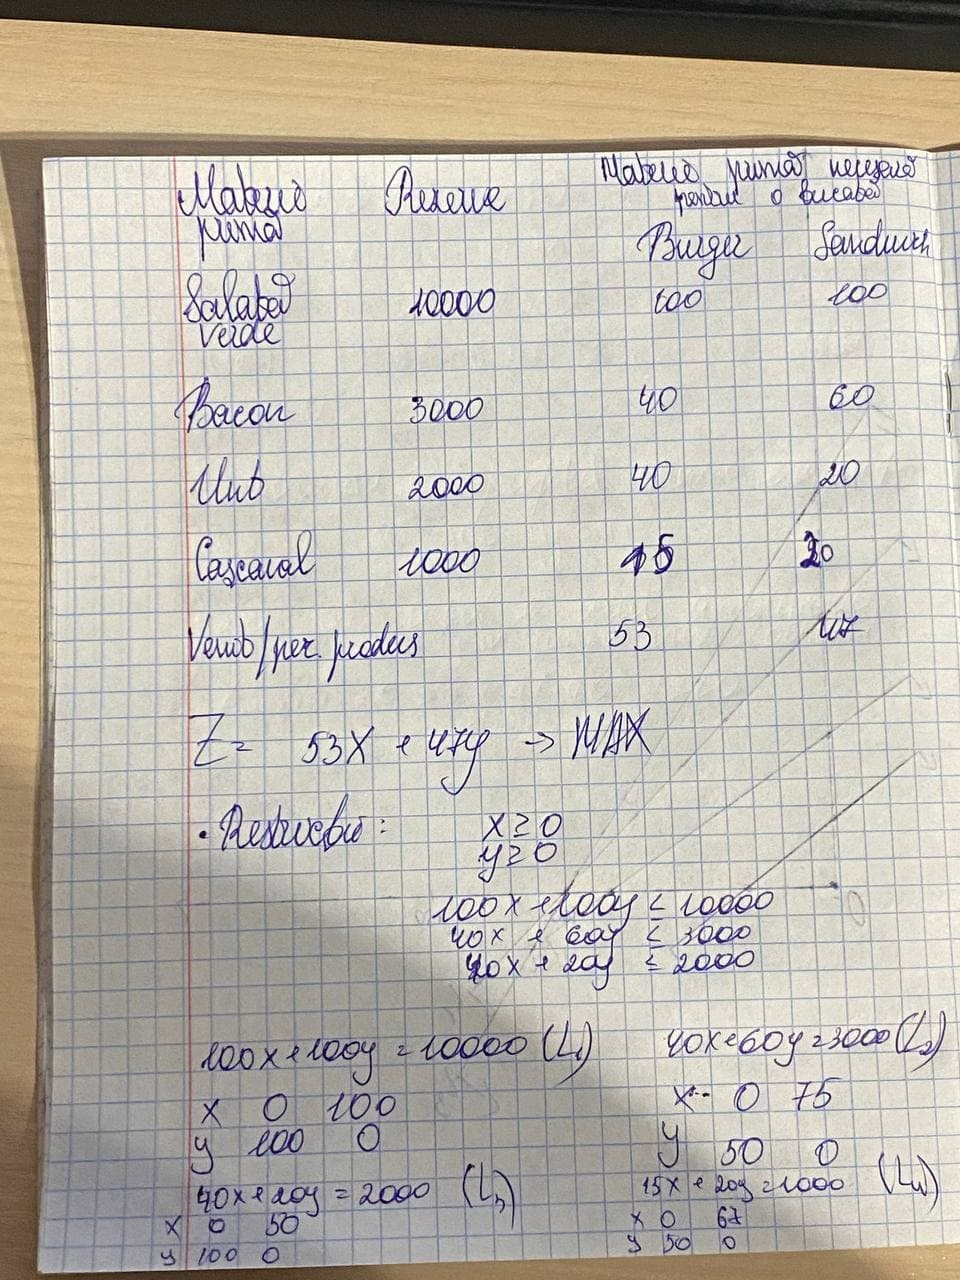 Materie primă Rezerve Materie primă necesară pentru o bucată
Burger Sandwich
Salată verde 10000 100 100
Bacon 3000 40 60
Unt 2000 40 20
Cașcaval 1000 15 20
Venit/per. produs 53 47
Z = 53x + 47y → MAX
• Restricții: x ≥ 0
y ≥ 0
100x + 100y ≤ 10000
40x + 60y ≤ 3000
40x + 20y ≤ 2000
100x + 100y = 10000 (L1) 40x + 60y = 3000 (L2)
x 0 100 x 0 75
y 100 0 y 50 0
40x + 20y = 2000 (L3) 15x + 20y = 1000 (L4)
x 0 50 x 0 67
y 100 0 y 50 0